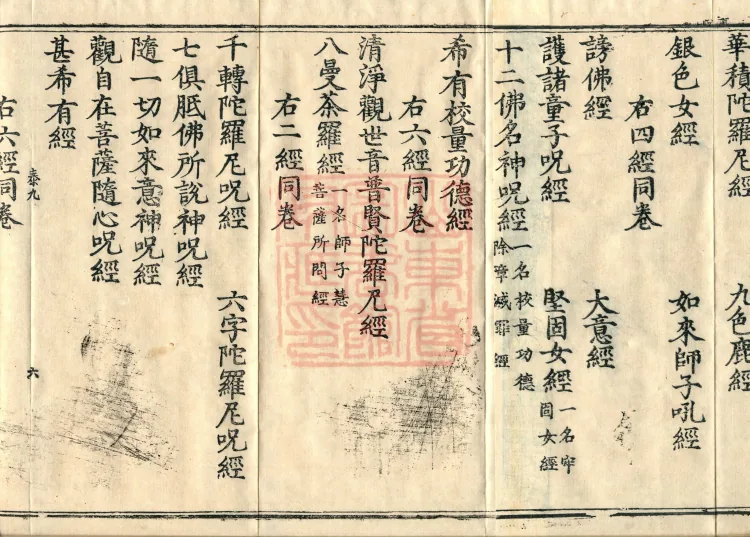 華積陀羅尼經 九色鹿經
銀色女經 如來師子吼經
右四經同卷
謗佛經 大意經
護諸童子呪經 堅固女經一名牢固女經
十二佛名神呪經一名校量功德除障滅罪經
希有校量功德經
右六經同卷
清淨觀世音普賢陀羅尼經
八曼荼羅經一名師子慧菩薩所問經
右二經同卷
千轉陀羅尼呪經 六字陀羅尼呪經
七俱胝佛所說神呪經
隨一切如來意神呪經
觀自在菩薩隨心呪經
甚希有經
泰九 六
右六經同卷